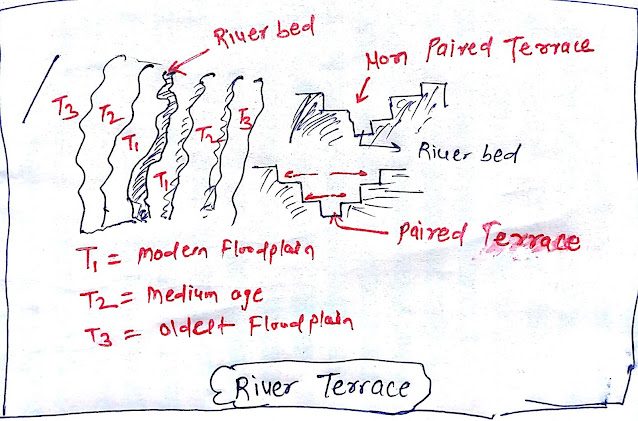 River bed
Non Paired Terrace
T3
T2
T1
T1
T2
T3
River bed
Paired Terrace
T1 = modern Floodplain
T2 = medium age
T3 = oldest Floodplain
River Terrace